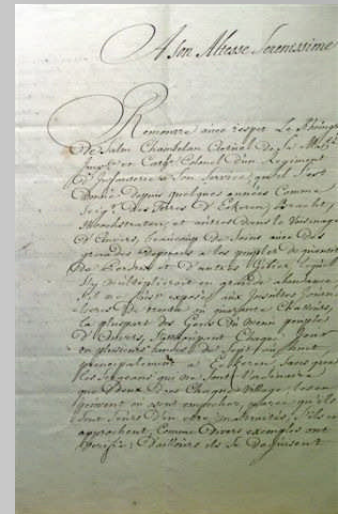 A Son Altesse Serenissime
Remontre avec respet Le Rhingrave
de Salm Chambelan Actuel de Sa Maj.té
Imp.le et Cath.e Colonel d'un Regiment
d'Infanterie a Son Service, qu'il s'est
donné depuis quelques années Comme
Seig.r des Terres d'Eckeren, Brecht,
et autres dans le Voisinage
d'Anvers, beaucoup de Soins avec des
grandes depenses a les peupler de quantité
de Perdrix et d'autres Gibier, lequel
s'y multiplieroit en grande abondance,
s'il ne fut exposé aux Insultes Journa
lieres de trente ou quarante Chasseurs,
la pluspart des Gens du menu peuple
d'Anvers, Chaque Jour
en plusieurs bandes de Sept ou huit
principalement a Eckeren, Sans que
les Sergeans qui ne Sont
que deux dans Chaque Village osent
ou empecher, parce qu'ils
Sont Seurs d'en etre maltraités, s'ils en
approchent, Comme divers exemples ont
Verifié; d'ailleurs ils se deguisent